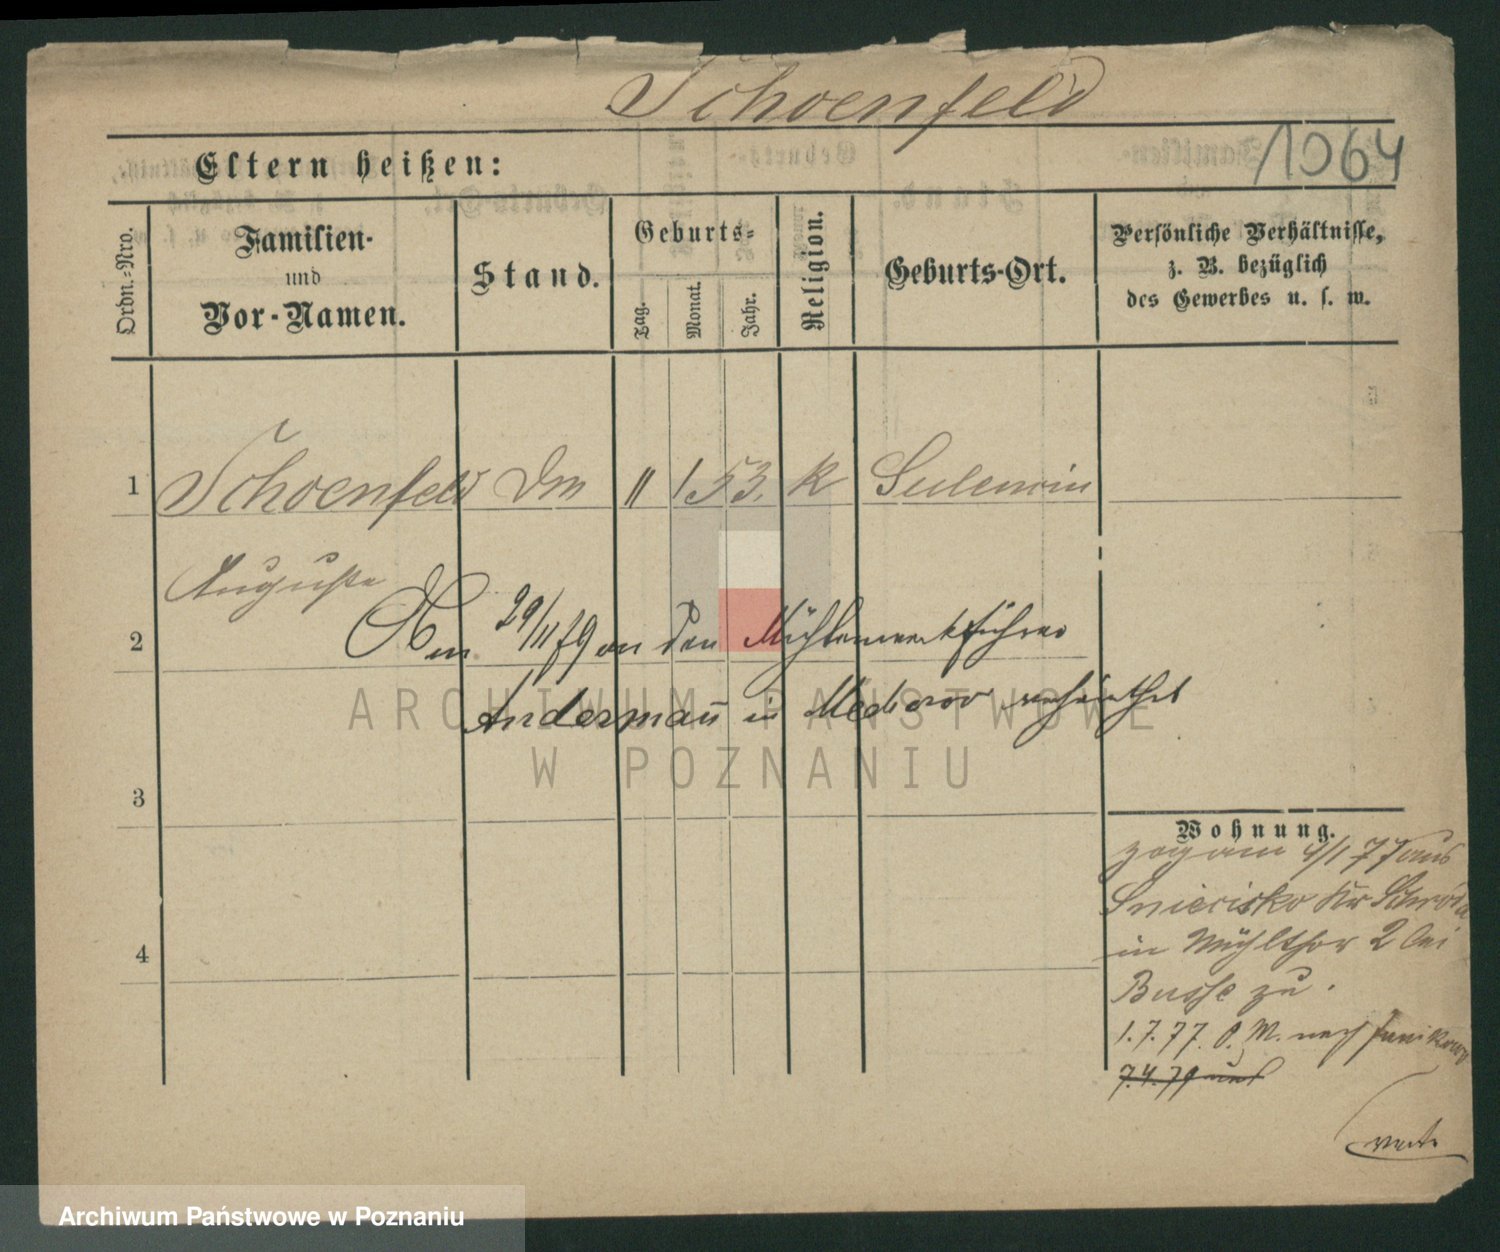 Schoenfeld
1064
Eltern heißen:
Ordn.-Nro.
Familien-
und
Vor-Namen.
Stand.
Geburts-
Tag.
Monat.
Jahr.
Religion.
Geburts-Ort.
Persönliche Verhältnisse,
z. B. bezüglich
des Gewerbes u. s. w.
1 Schoenfeld Dm 11 1 53. k Sulencin
Auguste
2 Am 29/11 79 an den Mühlenwerkführer
Andermann in verheirathet
3
4
Wohnung.
zog am 4/1 77 aus
Kr Schroda
in Mühlthor 2 bei
Busse zu.
1.7.77. P. W. nach
7.4.79 aus
verte
ARCHIWUM PAŃSTWOWE
W POZNANIU
Archiwum Państwowe w Poznaniu